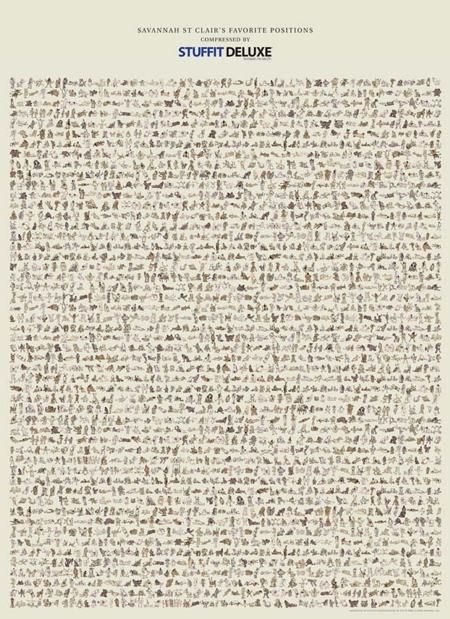 SAVANNAH ST CLAIR'S FAVORITE POSITIONS
COMPRESSED BY
STUFFIT DELUXE